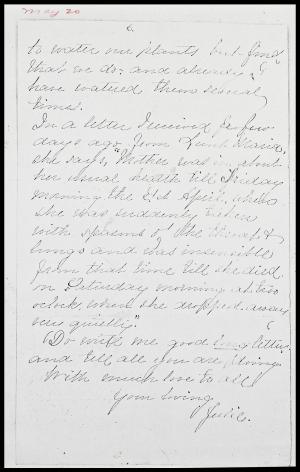 May 20
6
to water our plants but find
that we do: and already I
have watered them several
times.
In a letter I received a few
days ago, from Aunt Maria,
she says, "Mother was in about
her usual health till Friday
morning the 21st April, when
she was suddenly taken
with spasms of the throat &
lungs and was insensible
from that time till she died
on Saturday morning at two
oclock, when she dropped away
very quietly."
Do write me good long letters
and tell all you are doing.
With much love to all
Your loving
Julie.